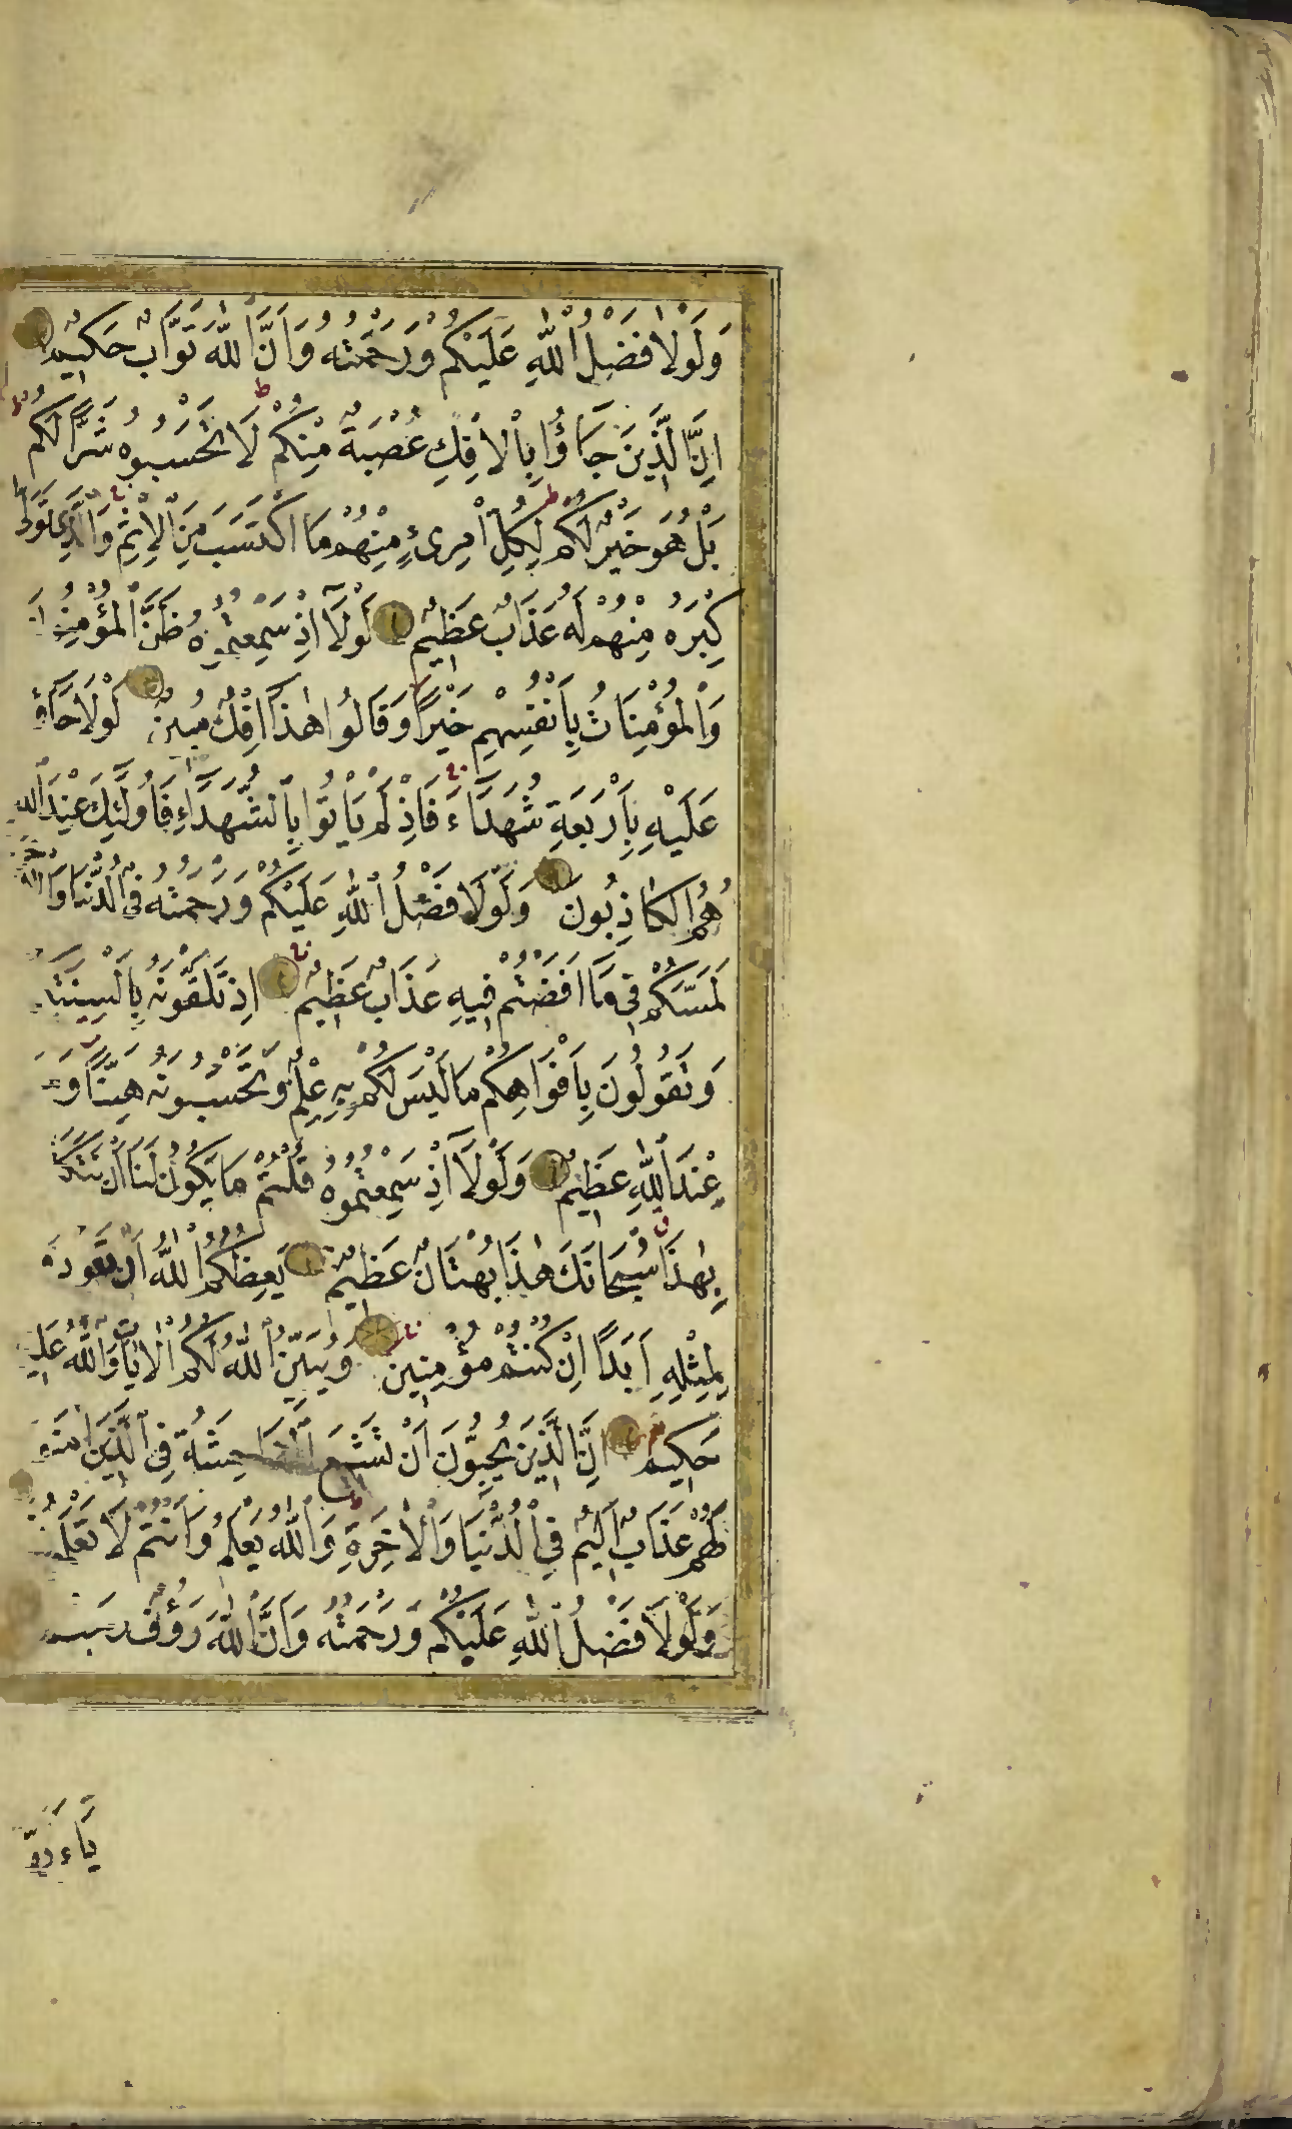 وَلَوْلَا فَضْلُ اللّٰهِ عَلَيْكُمْ وَرَحْمَتُهُ وَاَنَّ اللّٰهَ تَوَّابٌ حَكِيمٌ
اِنَّ الَّذِينَ جَاؤُا بِالْاِفْكِ عُصْبَةٌ مِنْكُمْ لَا تَحْسَبُوهُ شَرًّا لَكُمْ
بَلْ هُوَ خَيْرٌ لَكُمْ لِكُلِّ امْرِئٍ مِنْهُمْ مَا اكْتَسَبَ مِنَ الْاِثْمِ وَالَّذِي تَوَلّٰى
كِبْرَهُ مِنْهُمْ لَهُ عَذَابٌ عَظِيمٌ لَوْلَآ اِذْ سَمِعْتُمُوهُ ظَنَّ الْمُؤْمِنُونَ
وَالْمُؤْمِنَاتُ بِاَنْفُسِهِمْ خَيْرًا وَقَالُوا هٰذَا اِفْكٌ مُبِينٌ لَوْلَا جَاؤُ
عَلَيْهِ بِاَرْبَعَةِ شُهَدَآءَ فَاِذْ لَمْ يَأْتُوا بِالشُّهَدَآءِ فَاُولٰٓئِكَ عِنْدَ اللّٰهِ
هُمُ الْكَاذِبُونَ وَلَوْلَا فَضْلُ اللّٰهِ عَلَيْكُمْ وَرَحْمَتُهُ فِي الدُّنْيَا وَالْاٰخِرَةِ
لَمَسَّكُمْ فِي مَآ اَفَضْتُمْ فِيهِ عَذَابٌ عَظِيمٌ اِذْ تَلَقَّوْنَهُ بِاَلْسِنَتِ
وَتَقُولُونَ بِاَفْوَاهِكُمْ مَا لَيْسَ لَكُمْ بِهِ عِلْمٌ وَتَحْسَبُونَهُ هَيِّنًا وَ
عِنْدَ اللّٰهِ عَظِيمٌ وَلَوْلَآ اِذْ سَمِعْتُمُوهُ قُلْتُمْ مَا يَكُونُ لَنَا اَنْ نَتَكَ
بِهٰذَا سُبْحَانَكَ هٰذَا بُهْتَانٌ عَظِيمٌ يَعِظُكُمُ اللّٰهُ اَنْ تَعُودُ
لِمِثْلِهِ اَبَدًا اِنْ كُنْتُمْ مُؤْمِنِينَ وَيُبَيِّنُ اللّٰهُ لَكُمُ الْاٰيَاتِ وَاللّٰهُ عَلِي
حَكِيمٌ اِنَّ الَّذِينَ يُحِبُّونَ اَنْ تَشِيعَ الْفَاحِشَةُ فِي الَّذِينَ اٰمَنُو
لَهُمْ عَذَابٌ اَلِيمٌ فِي الدُّنْيَا وَالْاٰخِرَةِ وَاللّٰهُ يَعْلَمُ وَاَنْتُمْ لَا تَعْلَمُ
وَلَوْلَا فَضْلُ اللّٰهِ عَلَيْكُمْ وَرَحْمَتُهُ وَاَنَّ اللّٰهَ رَؤُفٌ